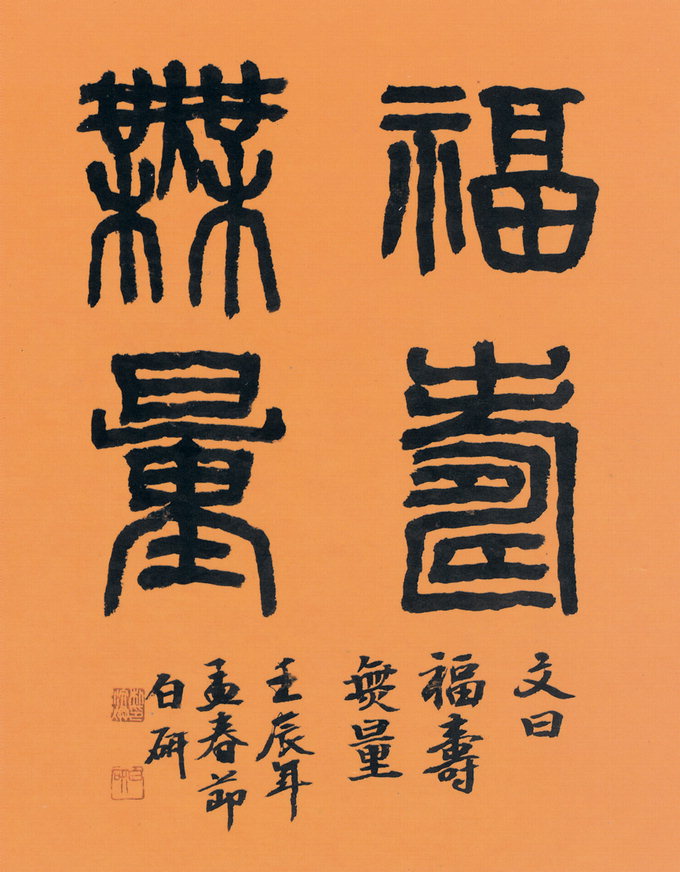 福壽
無量
文曰
福壽
無量
壬辰年
孟春節
白研